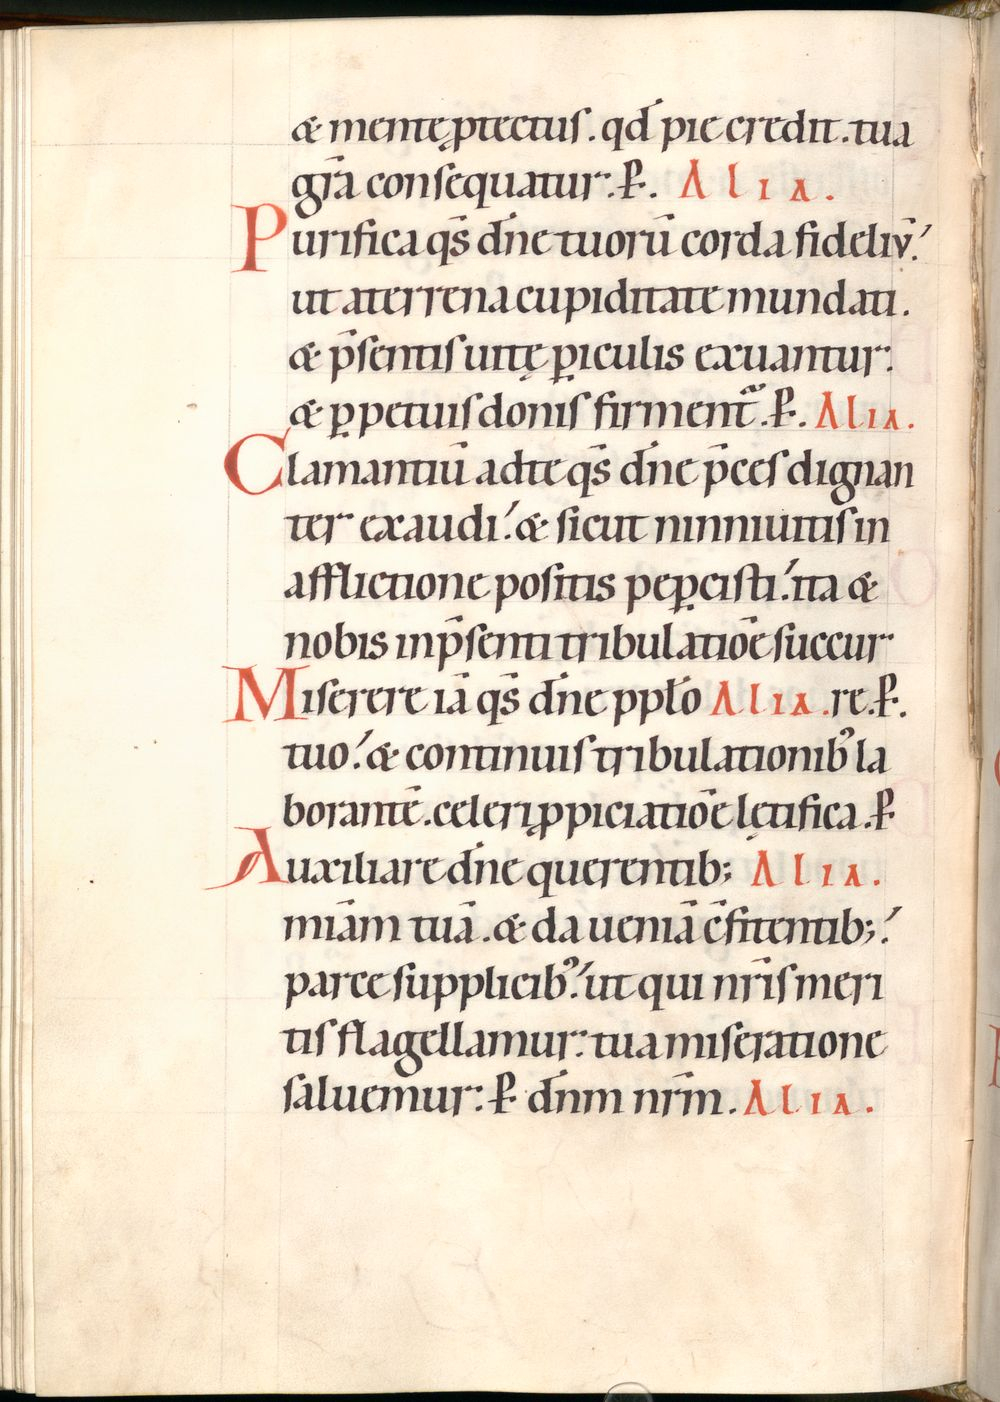 & mente ꝓtectus. qd̄ pie credit. tua
grā consequatur. P̱. Alia.
Purifica qs̄ dn̄e tuorū corda fideliv̄.
ut a terrena cupiditate mundati.
& p̄sentis uitę ꝑiculis exuantur.
& ꝑpetuis donis firment̄. P̱. Alia.
Clamantiū ad te qs̄ dn̄e p̄ces dignan
ter exaudi. & sicut ninniuitis in
afflictione positis peꝑcisti. ita &
nobis in p̄senti tribulatiōe succur
Miserere iā qs̄ dn̄e pplo Alia. re. P̱.
tuo. & continuis tribulationib; la
borantē. celeri ꝓpiciatiōe lętifica. P̱
Auxiliare dn̄e querentib; Alia.
miām tuā. & da ueniā c̄fitentib;.
parce supplicib;. ut qui nr̄is meri
tis flagellamur. tua miseratione
saluemur. P̱ dn̄m nr̄m. Alia.